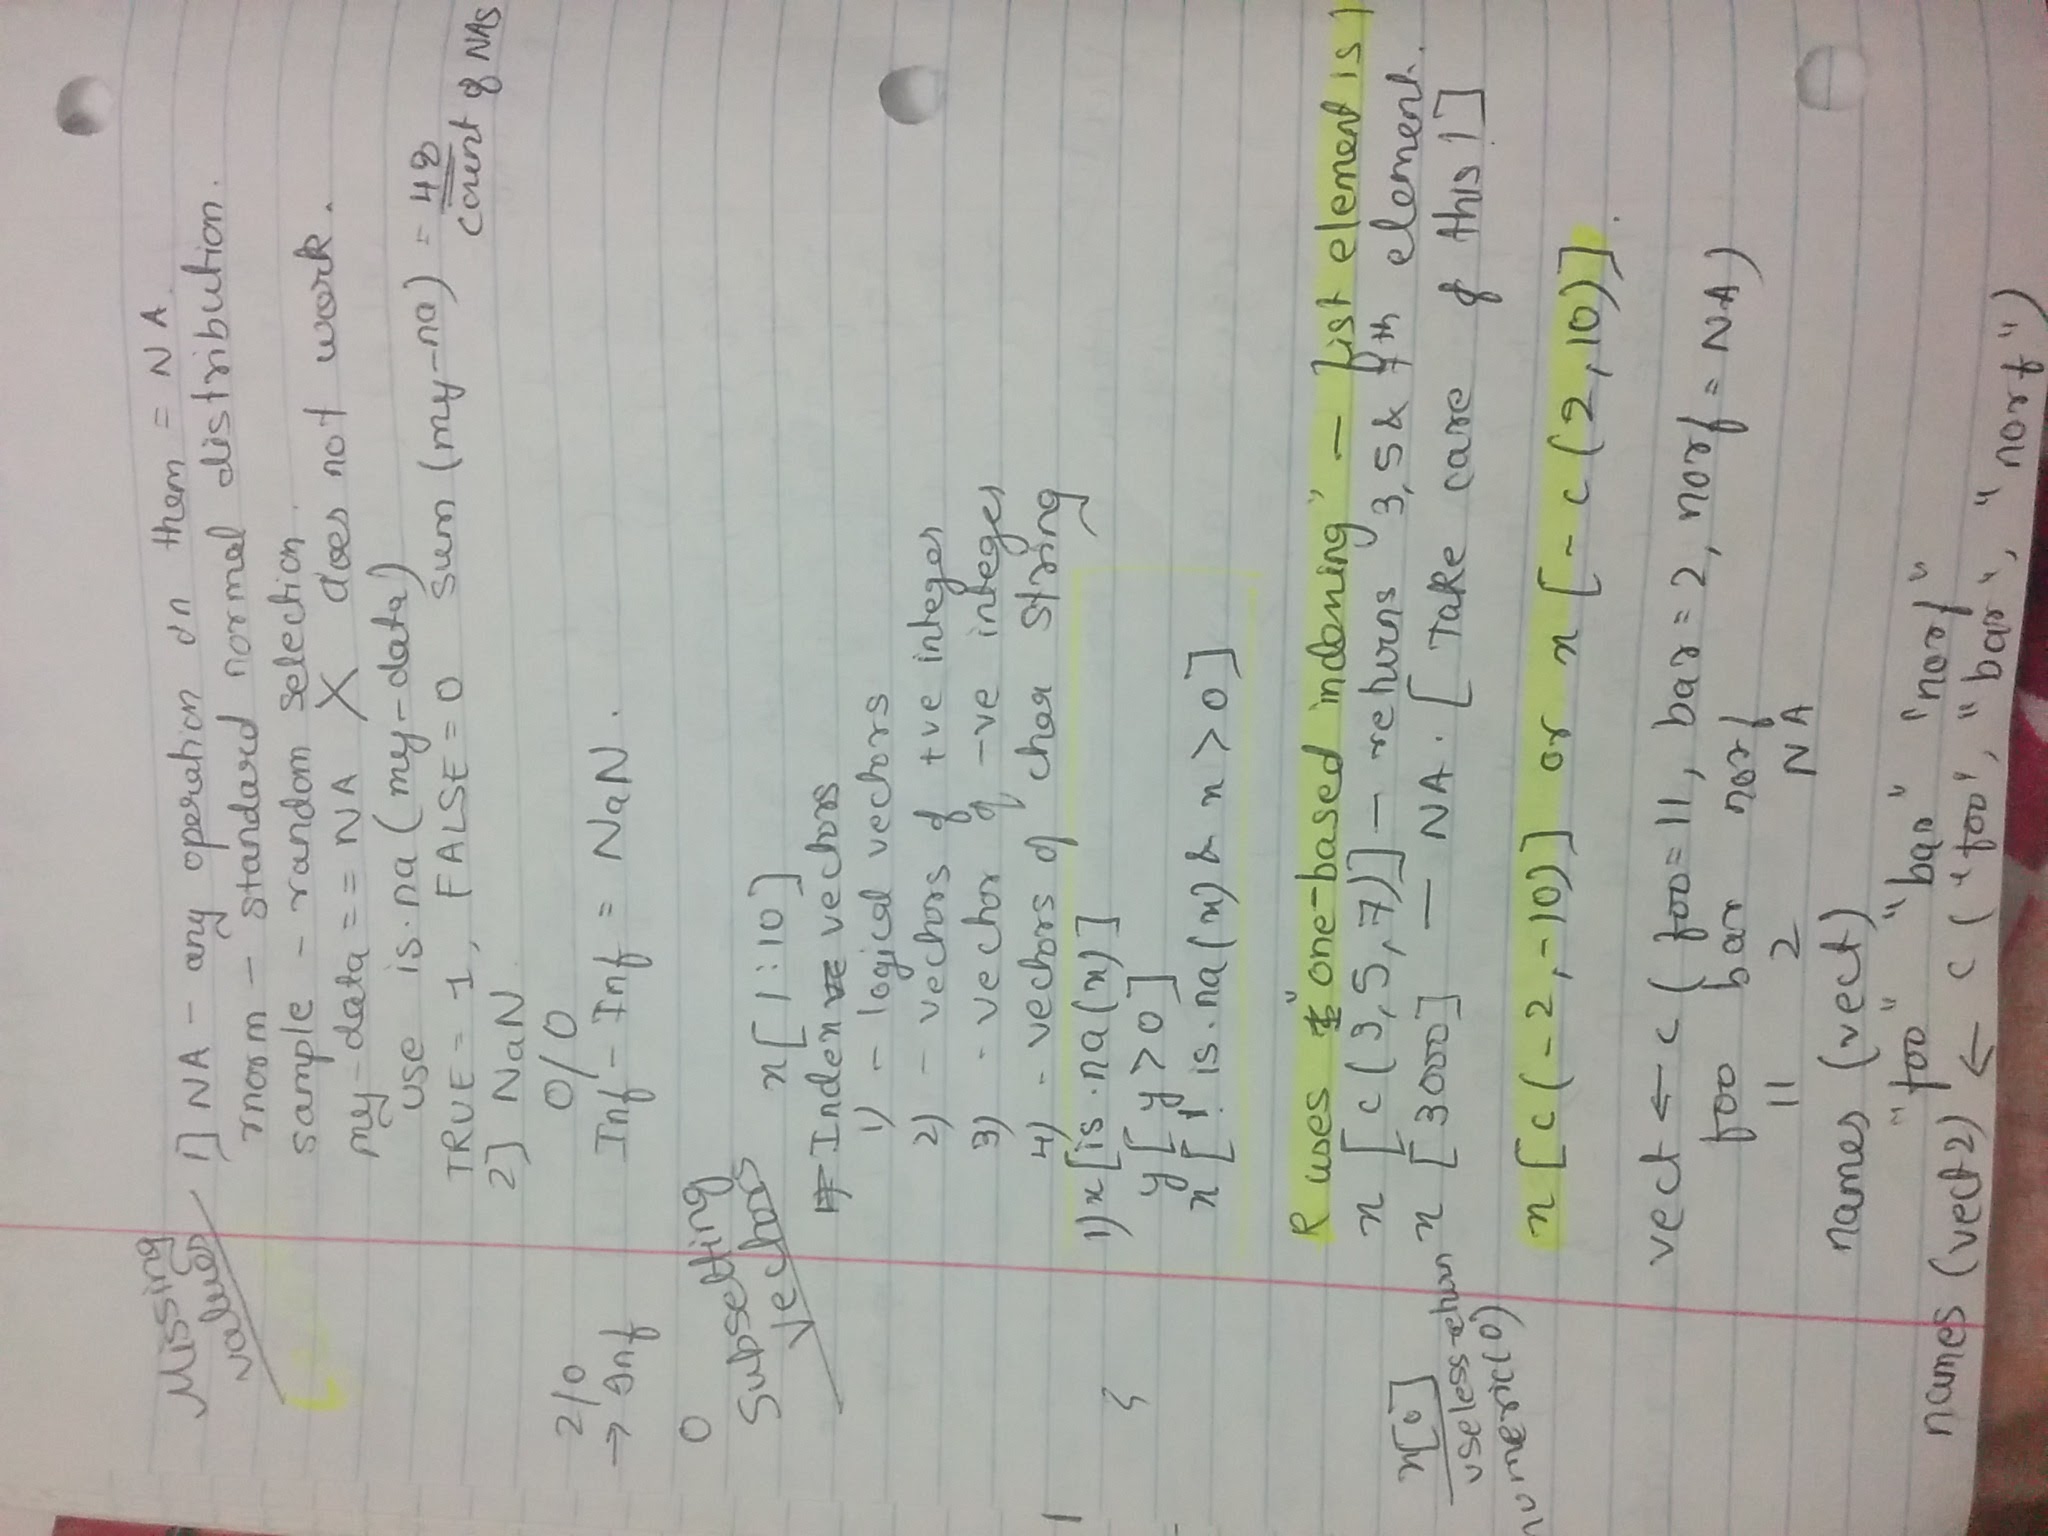 Missing values
1] NA - any operation on them = NA
rnorm - standard normal distribution.
sample - random selection.
my-data == NA X does not work.
use is.na (my-data)
TRUE = 1, FALSE = 0 sum (my-na) = 48
count of NAs
2] NaN
2/0 → Inf
0/0
Inf - Inf = NaN.
0
Subsetting Vectors
x[1:10]
# Index ve vectors
1) - logical vectors
2) - vectors of +ve integer
3) - vector of -ve integer
4) - vectors of char string
1) x[is.na(x)]
y[y>0]
x[!is.na(x) & x>0]
R uses "one-based indexing" - first element is 1
x [c(3,5,7)] - returns 3, 5 & 7th element.
x[0]
useless
numeric(0)
x [3000] - NA. [Take care of this!]
x[c(-2,-10)] or x[-c(2,10)].
vect <- c(foo=11, bar=2, norf=NA)
foo bar norf
11 2 NA
names (vect)
"foo" "bar" "norf"
names (vect2) <- c("foo", "bar", "norf")